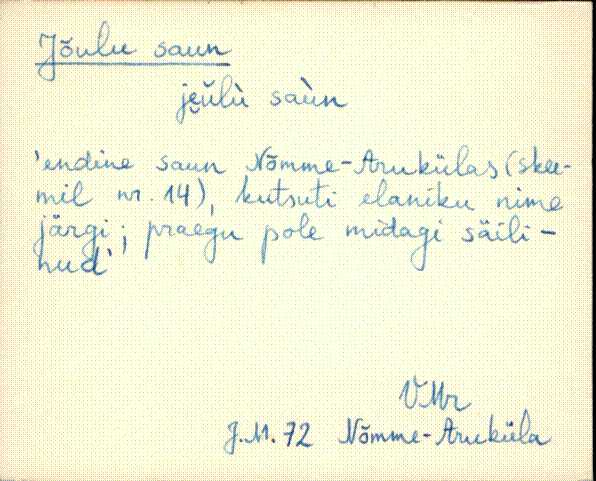 Jõulu saun
je̮ŭlù saùn
'endine saun Nõmme-Arukülas (skee-
mil nr. 14), kutsuti elaniku nime
järgi; praegu pole midagi säili-
nud'
VMr
J.M. 72 Nõmme-Aruküla